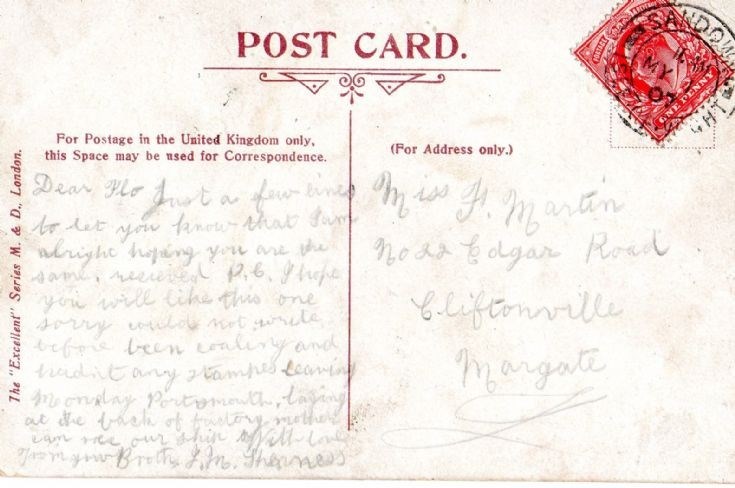 POST CARD.
SANDOWN
MY
ONE PENNY
For Postage in the United Kingdom only,
this Space may be used for Correspondence.
(For Address only.)
The "Excellent" Series M. & D., London.
Dear Flo Just a few lines
to let you know that I am
alright hoping you are the
same. recieved P.C. I hope
you will like this one
sorry could not write
before been coaling and
hadint any stampes leaving
Monday Portsmouth, laying
at the back of factory mother
can see our ship With love
From your Broth
Miss F. Martin
No 22 Edgar Road
Cliftonville
Margate